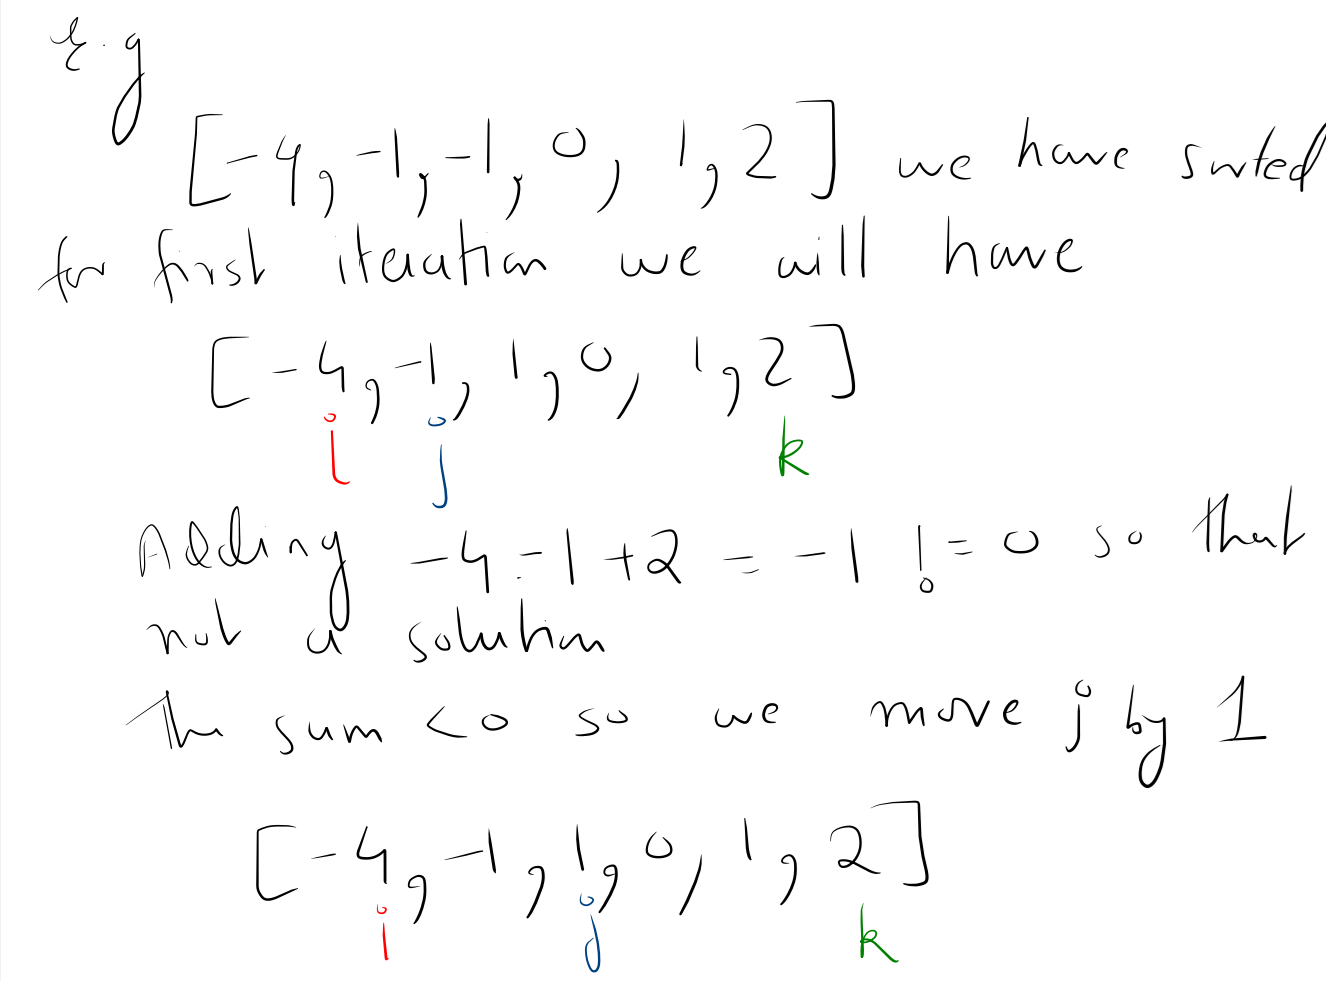 E.g
[-4, -1, -1, 0, 1, 2] we have sorted
for first iteration we will have
[-4, -1, 1, 0, 1, 2]
i j k
Adding -4 - 1 + 2 = -1 != 0 so that
not a solution
The sum < 0 so we move j by 1
[-4, -1, 1, 0, 1, 2]
i j k